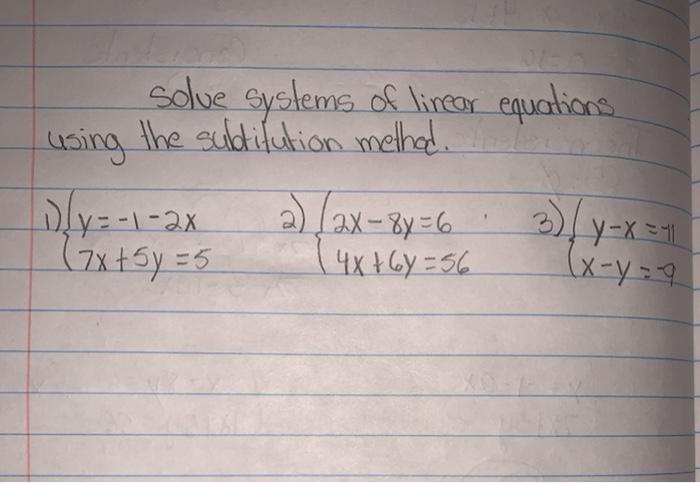 Solve systems of linear equations
using the subtitution method.
1) { y = -1 - 2x
7x + 5y = 5
2) { 2x - 8y = 6
4x + 6y = 56
3) { y - x = -11
x - y = -9